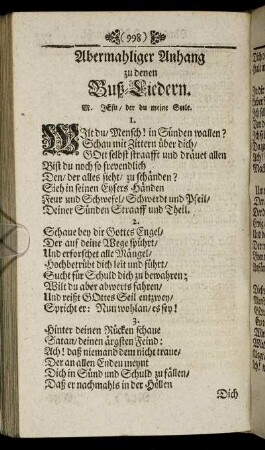 (998)
Abermahliger Anhang
zu denen
Buß-Liedern.
M. JEsu, der du meine Seele.
1.
Wilt du/ Mensch! in Sünden wallen?
Schau mit Zittern über dich/
GOtt selbst straafft und dräuet allen
Bist du noch so freventlich
Den/ der alles sieht/ zu schänden?
Sieh in seinen Eyfers-Händen
Feur und Schwefel/ Schwerdt und Pfeil/
Deiner Sünden Straaff und Theil.
2.
Schaue bey dir Gottes Engel/
Der auf deine Wege spührt/
Und erforschet alle Mängel/
Hochbetrübt dich leit und führt/
Sucht für Schuld dich zu bewahren;
Wilt du aber abwerts fahren/
Und reißt GOttes Seil entzwey/
Spricht er: Nun wohlan/ es sey!
3.
Hinter deinen Rücken schaue
Satan/ deinen ärgsten Feind:
Ach! daß niemand dem nicht traue/
Der an allen Enden meynt
Dich in Sünd und Schuld zu fällen/
Daß er nachmahls in der Höllen
Dich